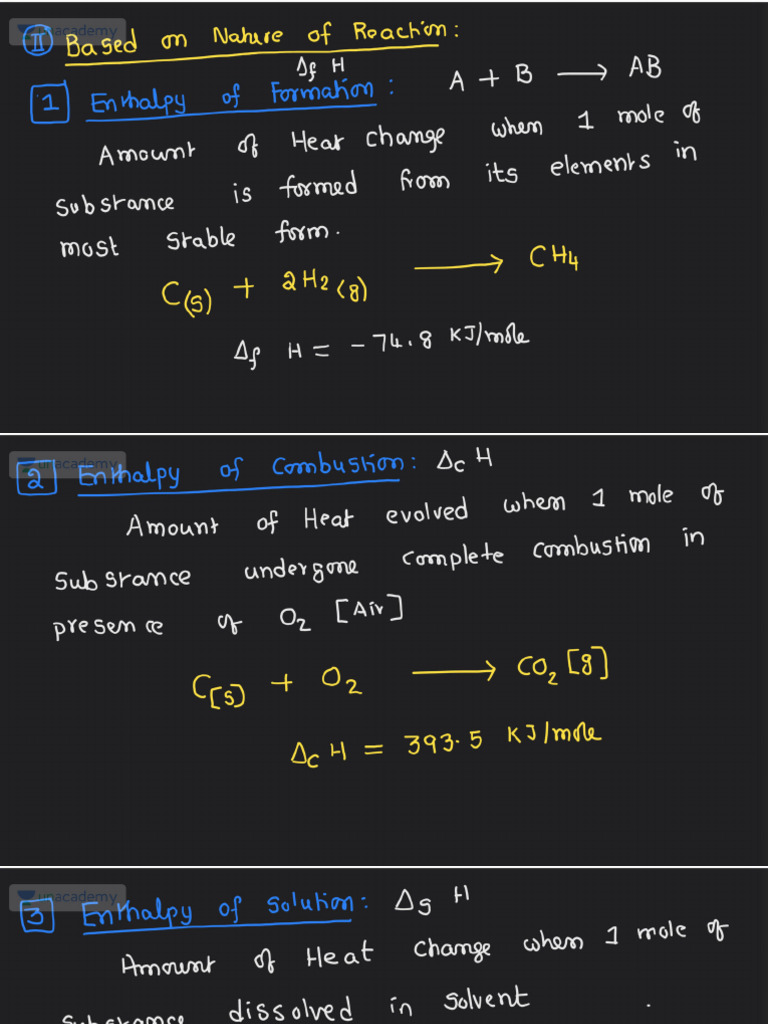 unacademy
II Based on Nature of Reaction:
Δf H
1 Enthalpy of Formation: A + B ⟶ AB
Amount of Heat change when 1 mole of
substance is formed from its elements in
most stable form.
C(s) + 2H2(g) ⟶ CH4
Δf H = -74.8 KJ/mole
unacademy
2 Enthalpy of Combustion: Δc H
Amount of Heat evolved when 1 mole of
substance undergone complete combustion in
presence of O2 [Air]
C[s] + O2 ⟶ CO2[g]
Δc H = 393.5 KJ/mole
unacademy
3 Enthalpy of Solution: Δs H
Amount of Heat change when 1 mole of
substance dissolved in solvent .